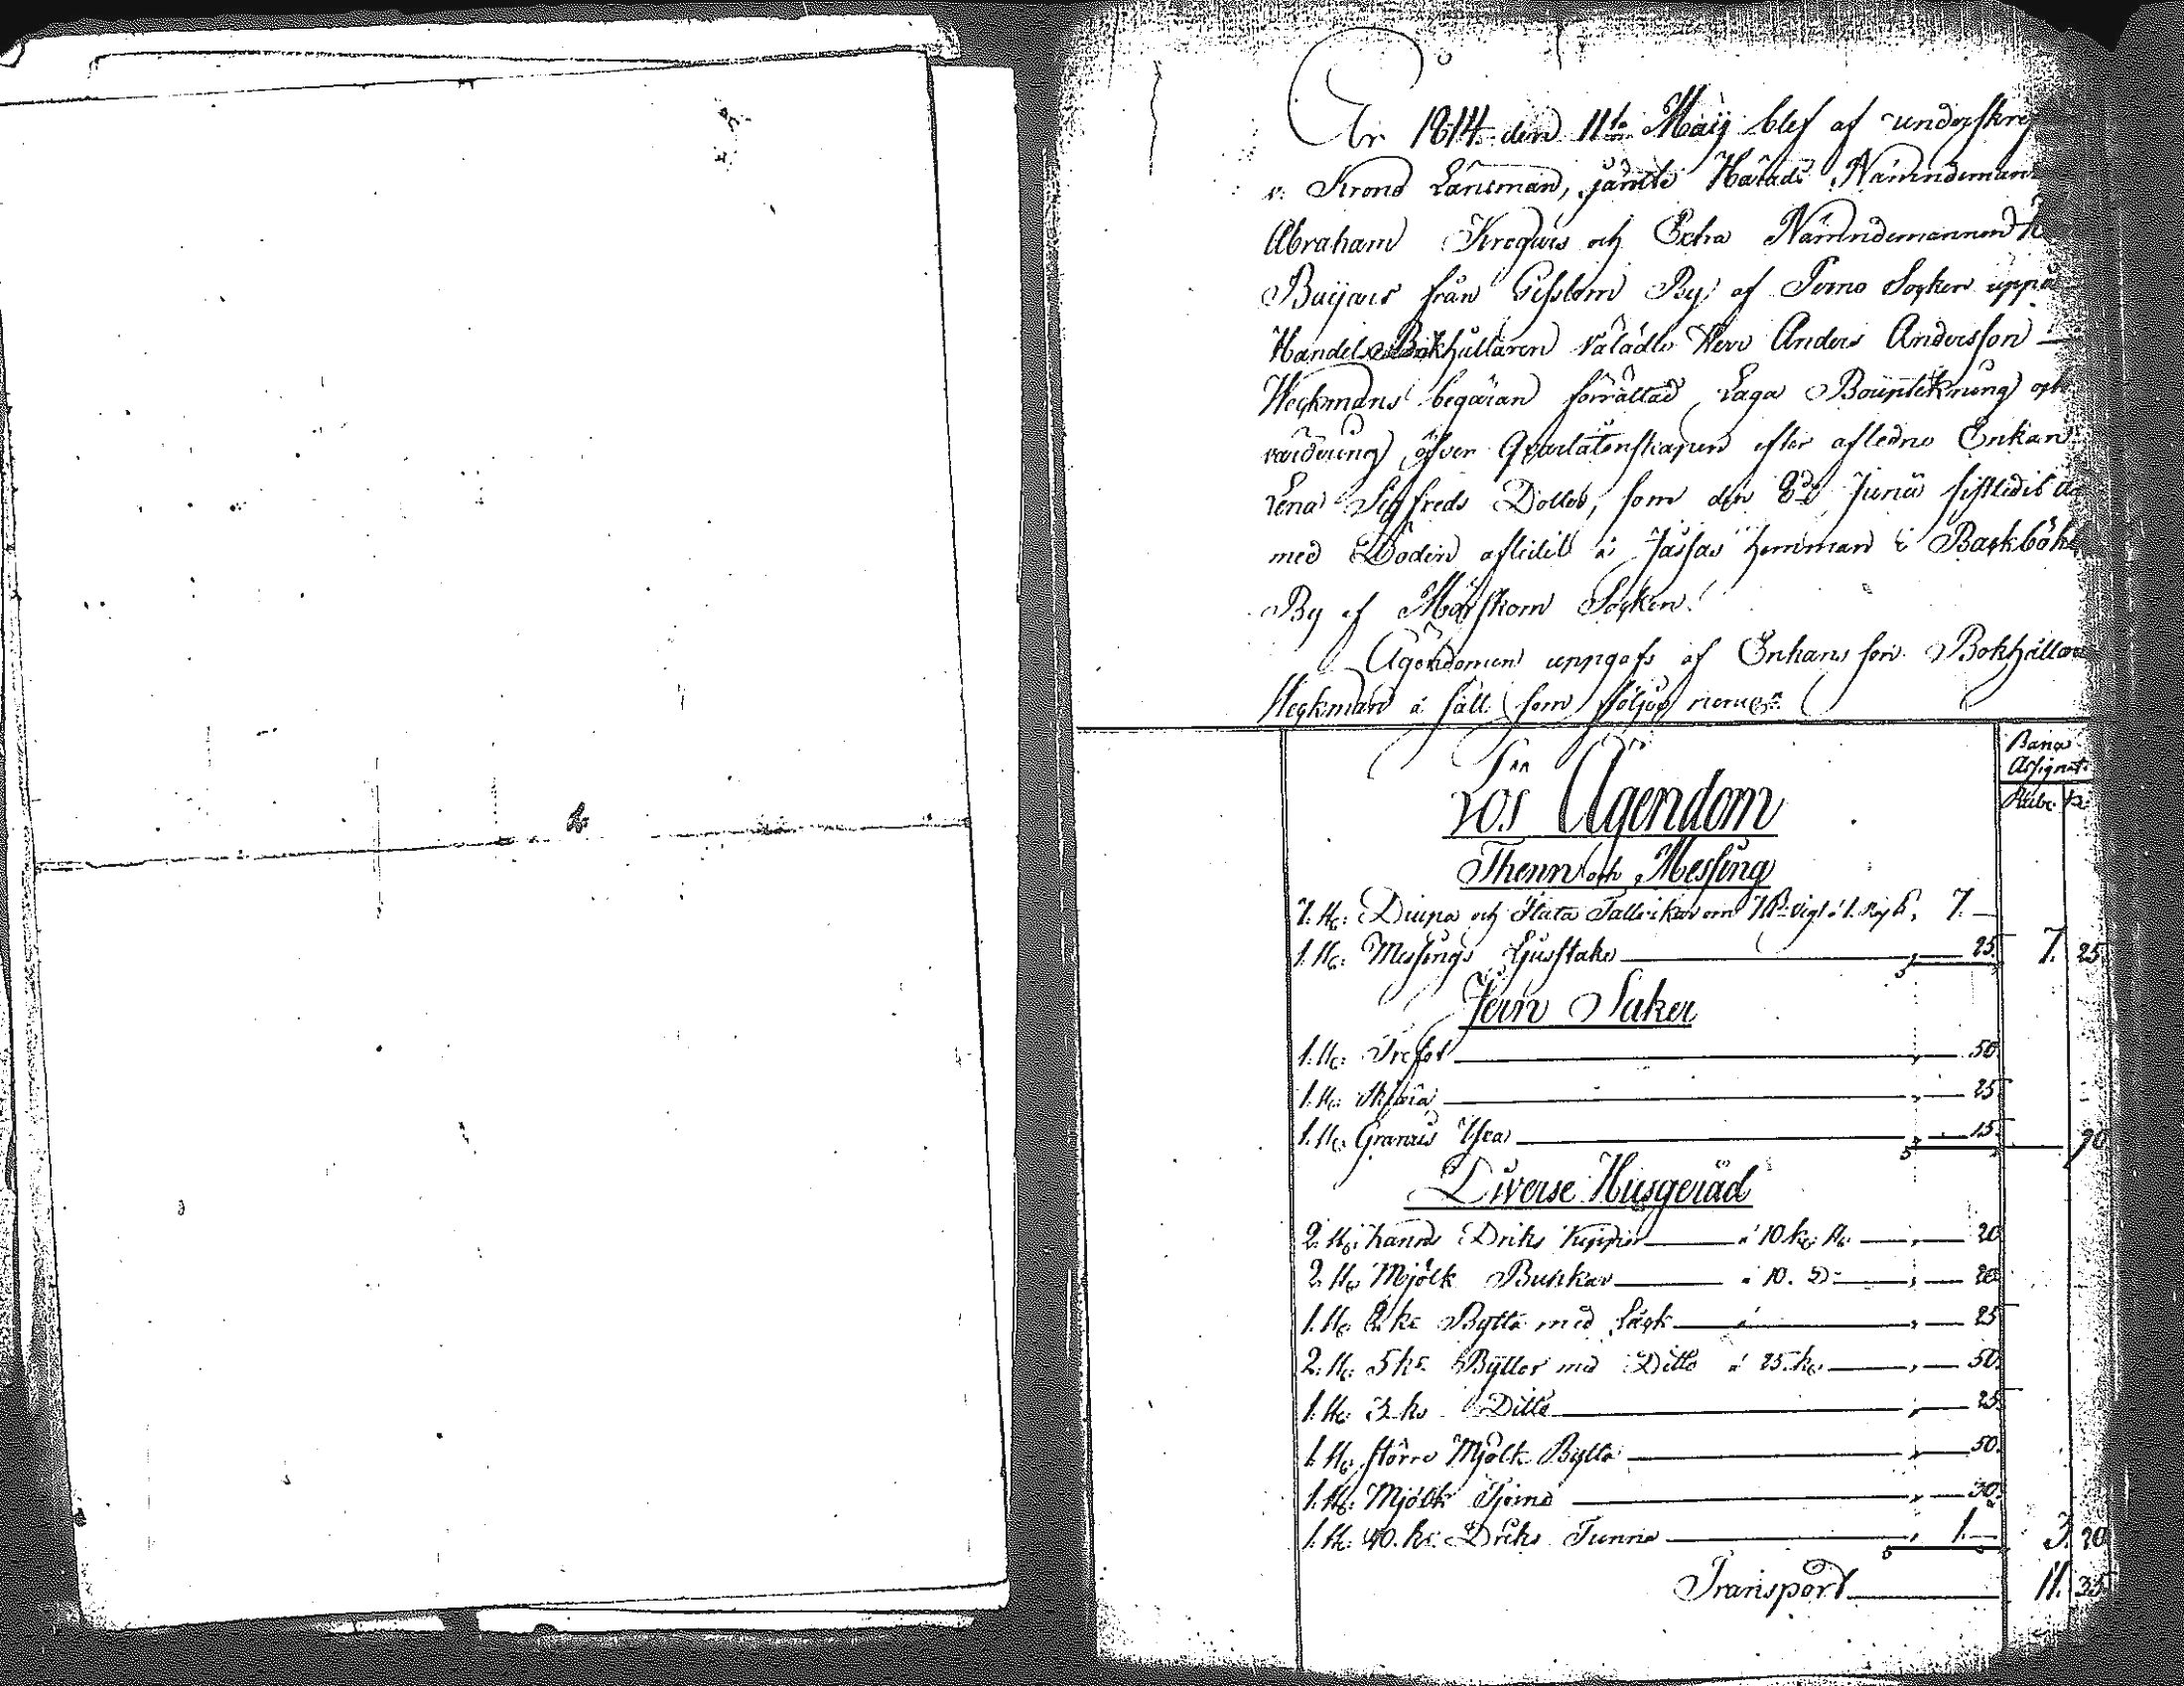 År 1814 den 11te Maij blef af underskre
v: Krono Länsman, jämte Härads Nämndeman
Abraham Kroguis och Extra Nämndemannen
Buijars från Gislom By af Perno Socken uppå
Handels Bokhållaren Välädle Herr Anders Andersson
Heckmans begäran förrättad Laga Boupteckning och
värdering öfver Qvarlåtenskapen efter afledne Enkan
Lena Sigfreds Dotter, som den 8de Junii sistledit
med Döden aflidit å Jassas hemman i Backböhle
By af Mörskom Socken.
Ägendomen uppgafs af Enkans son Bokhållare
Heckman å sätt som följer nemln:
Lös Ägendom
Banco Assignat:
Rub. k:
Thenn och Messing
7. st: Diupa och flata Tallrikar om 7 ℔ vigt á 1. R 7. —
1. st: Messings Ljusstake — 25. 7. 25
Jern Saker
1. st: Trefot — 50
1. st: Skära — 25
1. st: Granris Yxa — 15. 90
Diverse Husgeråd
2. st: kanns Driks á 10 k: st: — 20
2. st: Mjölk Bunkar á 10. D: — 20
1. st: ks Bytta med Låck — 25
2. st: 5 ks Byttor med Ditto á 25. k: — 50.
1. st: 3 ks Ditto — 25
1. st: större Mjölk Bytta — 50.
1. st: Mjölk — 30.
1. st: 40. ks: Driks Tunna 1. — 3. 20
Transport 11. 35